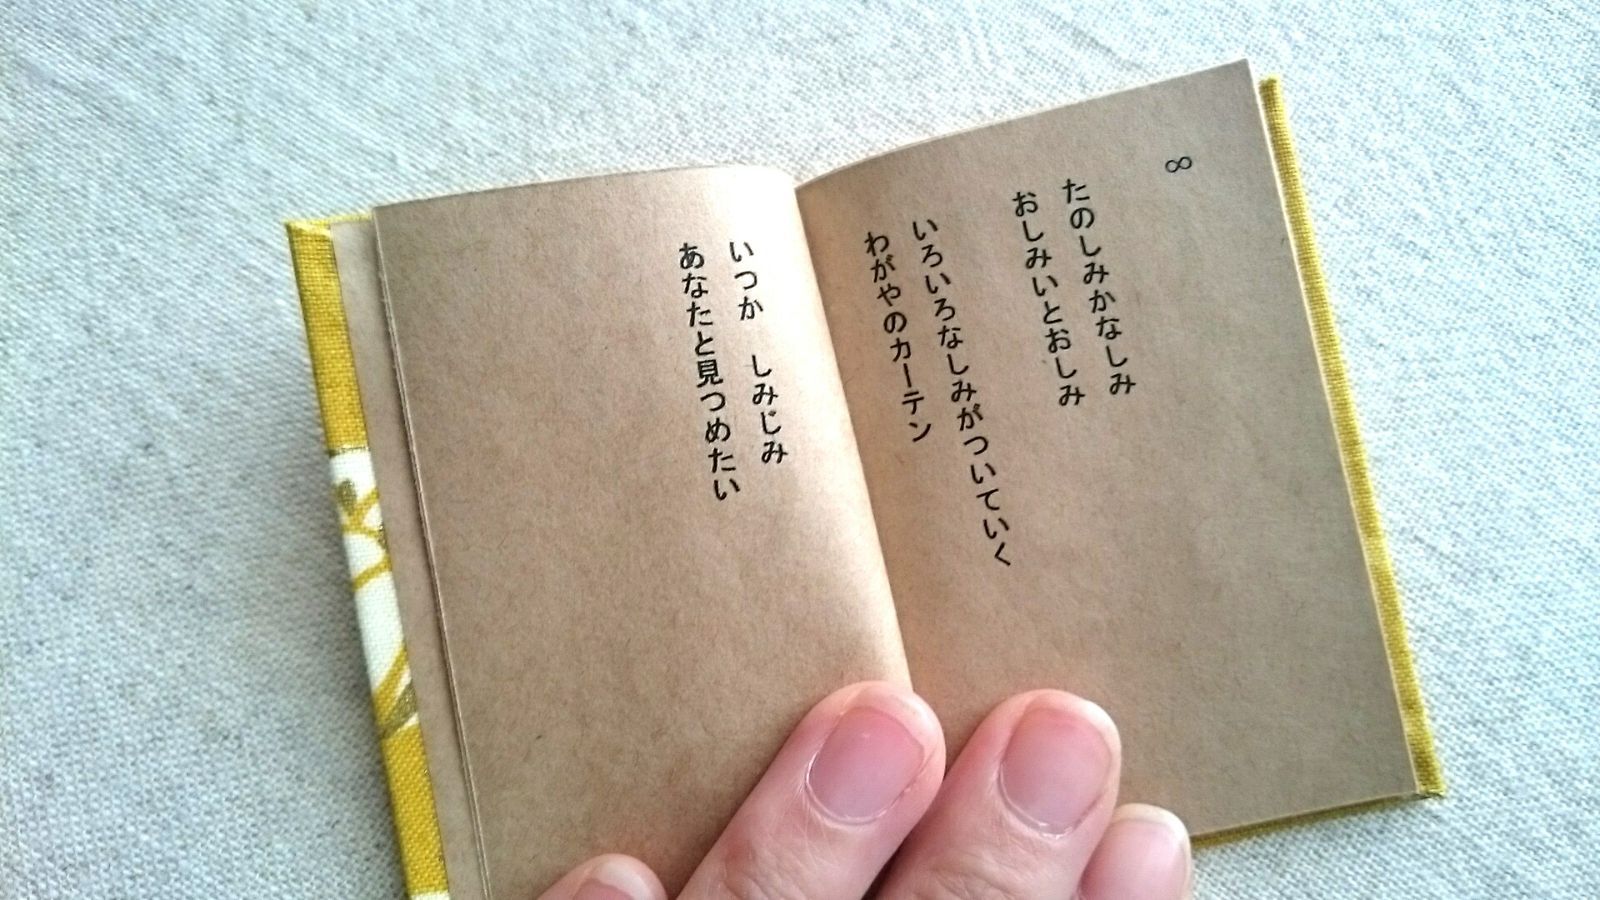 ∞
たのしみかなしみ
おしみいとおしみ
いろいろなしみがついていく
わがやのカーテン
いつか　しみじみ
あなたと見つめたい